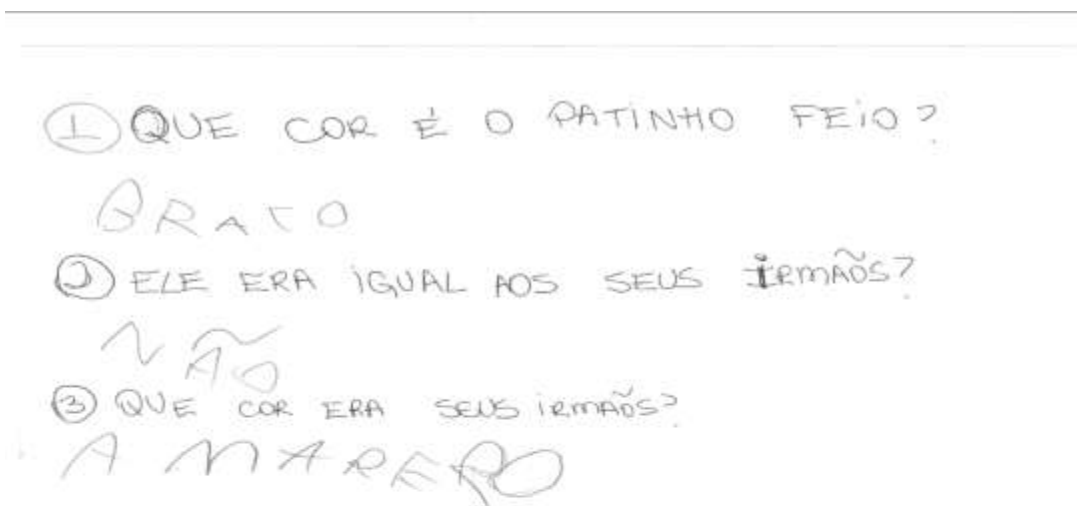 1 QUE COR É O PATINHO FEIO?
BRATO
2 ELE ERA IGUAL AOS SEUS IRMÃOS?
NÃO
3 QUE COR ERA SEUS IRMÃOS?
A MARERO